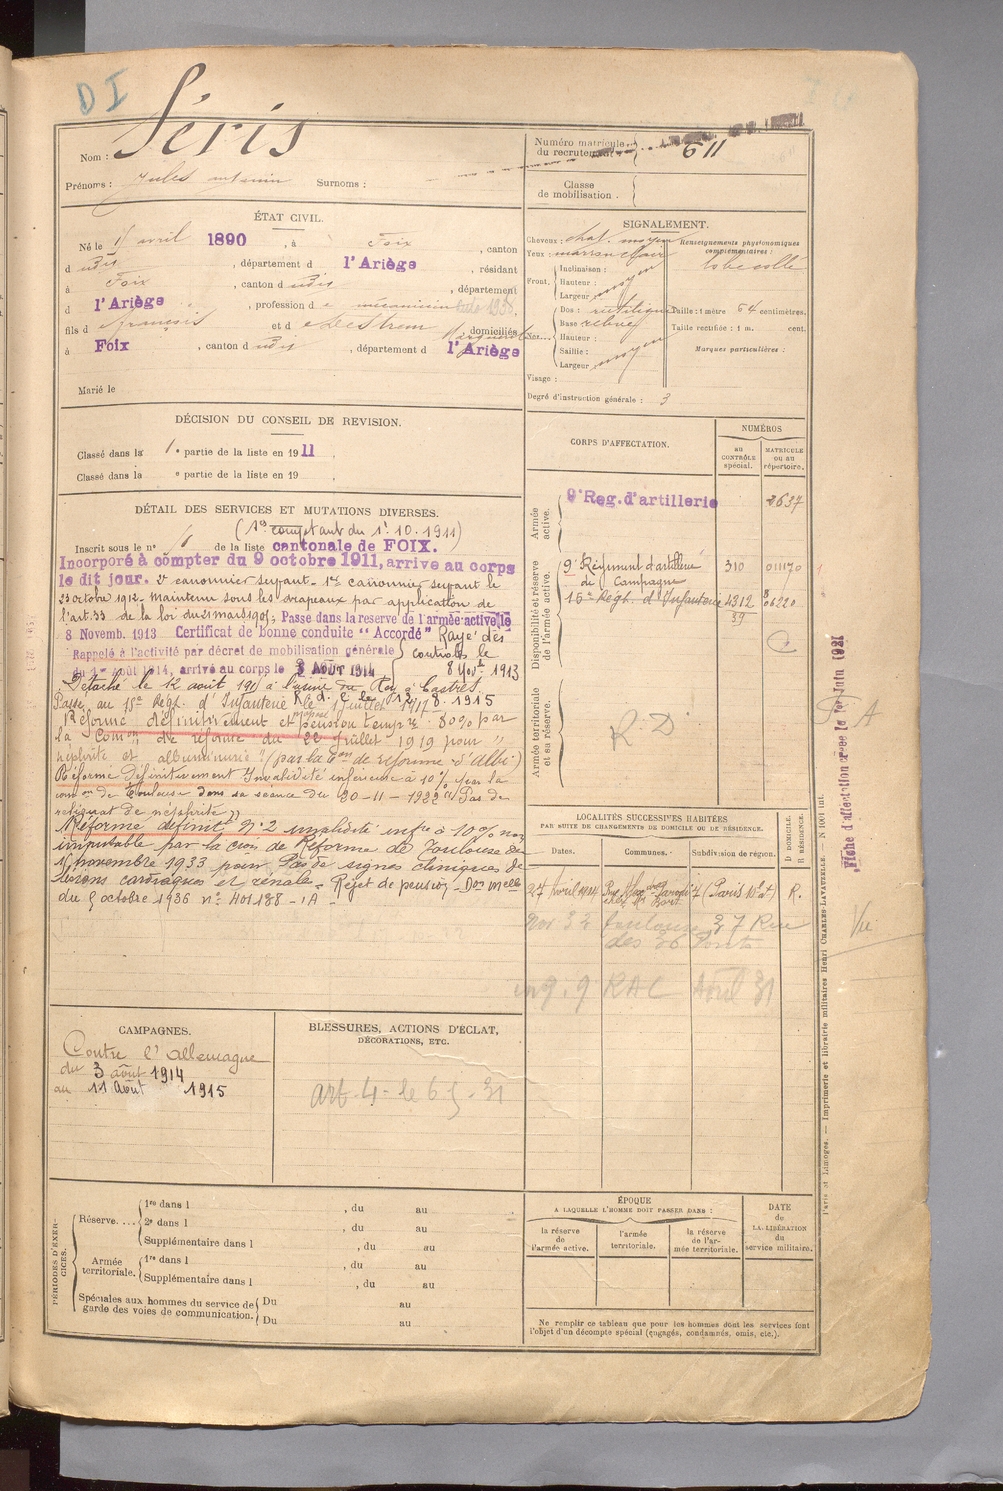 DI
Séris
Nom :
Prénoms : Jules antonin Surnoms :
Numéro matricule du recrutement 611
Classe de mobilisation .
ÉTAT CIVIL.
Né le avril 1890 , à Foix , canton
d udit , département d l'Ariège , résidant
à Foix , canton d udit , département
d l'Ariège , profession d e mécanicien
fils d e françois et d e domiciliés
à Foix , canton d udit , département d l'Ariège
Marié le
DÉCISION DU CONSEIL DE REVISION.
Classé dans la 1e partie de la liste en 1911 .
Classé dans la e partie de la liste en 19 .
DÉTAIL DES SERVICES ET MUTATIONS DIVERSES.
(1er comptant du 1er 10.1911)
Inscrit sous le n° 16 de la liste cantonale de FOIX.
Incorporé à compter du 9 octobre 1911, arrive au corps
le dit jour. 2e canonnier servant. 1er canonnier servant le
23 octobre 1912. Maintenu sous les drapeaux par application de
l'art. 33 de la loi du 21 mars 1905; Passe dans la réserve de l'armée active le
8 Novemb. 1913 Certificat de bonne conduite "Accordé" Rayé des contrôles le 8 Nov. 1913
Rappelé à l'activité par décret de mobilisation générale
du 1er Août 1914, arrivé au corps le 3 AOÛT 1914
Détaché le 12 août 191 à l'usine à Castres
Passe au 15e Régt. d'Infanterie le 1 juillet 1917
R.d.C. le 12.8.1915
Réformé définitivement et pension tempre 80% par
la Comon de réforme du 22 juillet 1919 pour "
néphrite et albuminurie" (par la Con de réforme d'Albi)
Réforme définitivement Invalidité inférieure à 10% par la
comon de Toulouse dans sa séance du 20-11-1922 "Pas de
reliquat de néphrite"
Réforme définit. N° 2 invalidité infre à 10% non
imputable par la Cion de Réforme de Toulouse du
novembre 1933 pour Pas de signes cliniques de
lésions cardiaques et rénales. Rejet de pension. Don Melle
du 5 octobre 1936 n° 401188 - 1A -
SIGNALEMENT.
Cheveux : chat. moyen
Yeux : marron clair
Front. Inclinaison :
Hauteur : moyen
Largeur
Nez. Dos : rectiligne
Base relevé
Hauteur :
Saillie : moyen
Largeur
Visage :
Renseignements physionomiques complémentaires :
lobe collé
Taille : 1 mètre 64 centimètres.
Taille rectifiée : 1 m. cent.
Marques particulières :
Degré d'instruction générale : 3
CORPS D'AFFECTATION.
NUMÉROS
AU CONTRÔLE spécial.
MATRICULE ou au répertoire.
Armée active.
9e Reg. d'artillerie 2637
Disponibilité et réserve de l'armée active.
9e Régiment d'artillerie de Campagne 310 011170
15e Régt. d'Infanterie 4312 6220
39
Armée territoriale et sa réserve.
RD
LOCALITÉS SUCCESSIVES HABITÉES
PAR SUITE DE CHANGEMENTS DE DOMICILE OU DE RÉSIDENCE.
Dates. Communes. Subdivision de région. D. DOMICILE. R. RÉSIDENCE.
27 avril 1914 R.
Nov 32 Toulouse 37 Rue
des 36 Ponts
RAC Août 31
Fiche d'affectation créée le 1er Juin 1931
Vu
CAMPAGNES.
Contre l'Allemagne
du 3 août 1914
au 11 Août 1915
BLESSURES, ACTIONS D'ÉCLAT,
DÉCORATIONS, ETC.
PÉRIODES D'EXERCICES.
Réserve. ... 1re dans l , du au .
2e dans l , du au
Supplémentaire dans l , du au
Armée territoriale. 1re dans l , du au
Supplémentaire dans l , du au
Spéciales aux hommes du service de garde des voies de communication. Du au
Du au
ÉPOQUE
A LAQUELLE L'HOMME DOIT PASSER DANS :
la réserve de l'armée active.
l'armée territoriale.
la réserve de l'armée territoriale.
DATE de LA LIBÉRATION du service militaire.
Ne remplir ce tableau que pour les hommes dont les services sont
l'objet d'un décompte spécial (engagés, condamnés, omis, etc.).
Paris et Limoges. — Imprimerie et librairie militaires Henri CHARLES-LAVAUZELLE.